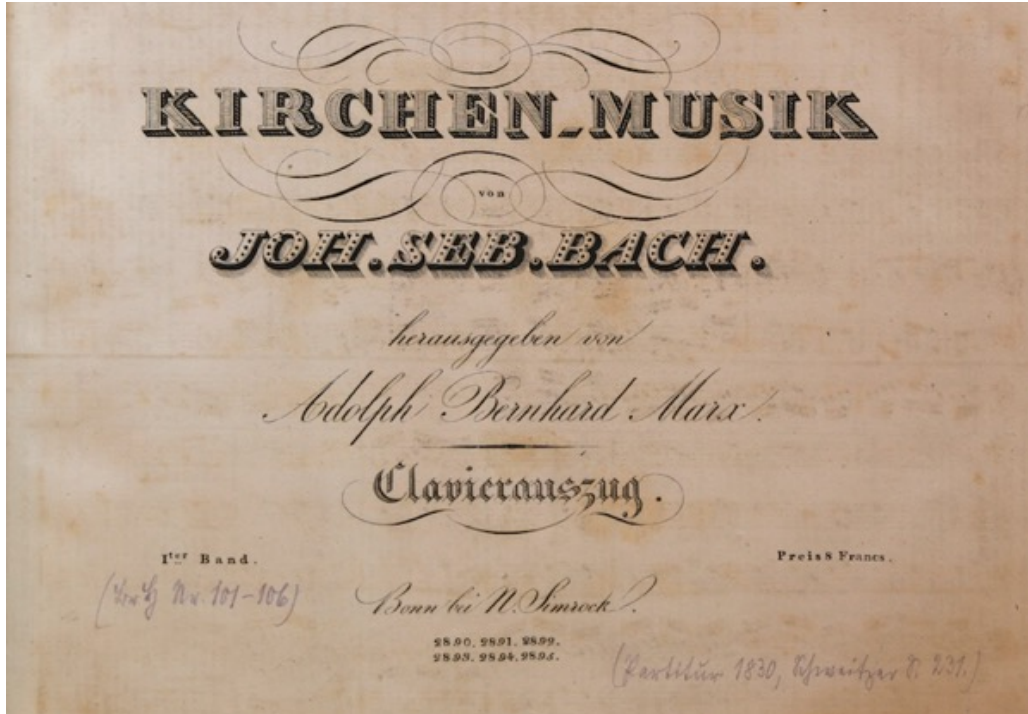 KIRCHEN-MUSIK
von
JOH. SEB. BACH.
herausgegeben von
Adolph Bernhard Marx.
Clavierauszug.
Iter Band.
Preis 8 Francs.
(B. u. H. Nr. 101-106)
Bonn bei N. Simrock.
2890. 2891. 2892.
2893. 2894. 2895.
(Partitur 1830, Schweitzer S. 231.)